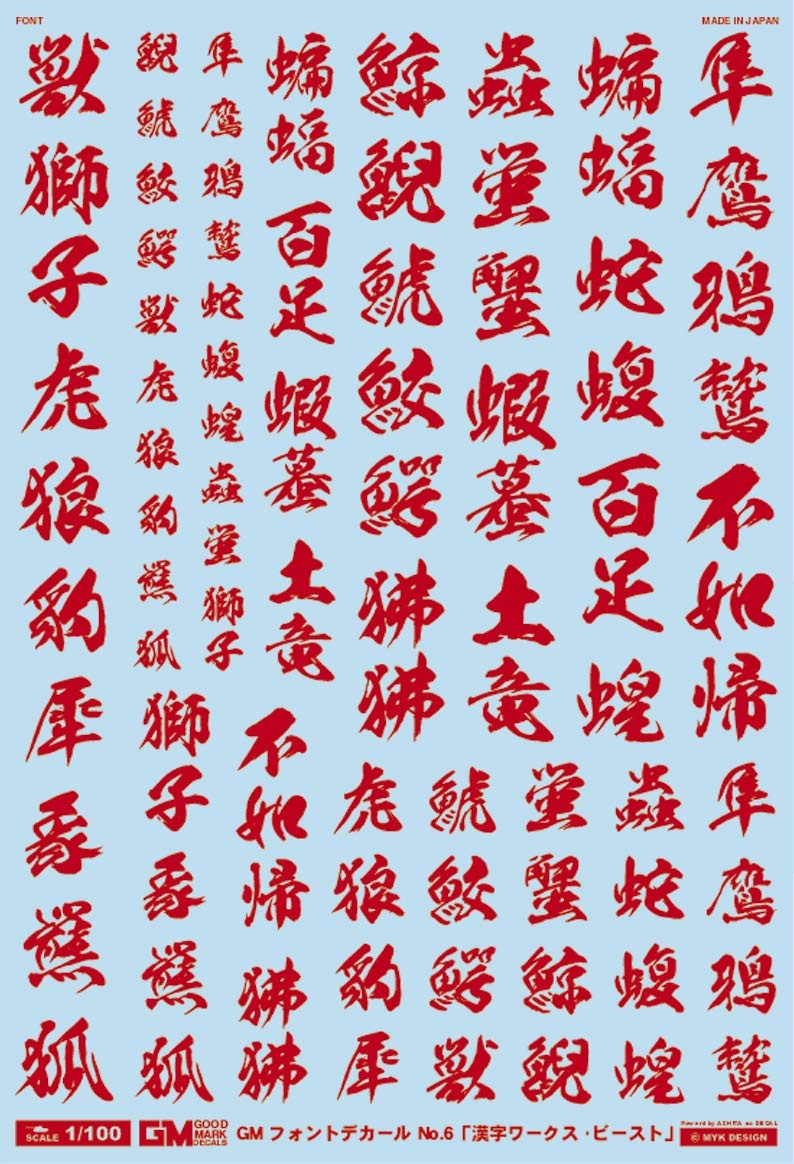 FONT
MADE IN JAPAN
獣獅子虎狼豹犀象熊狐
鯢鯱鮫鰐獣虎狼豹熊狐
隼鷹鴉鷲蛇蝮蝗蟲蛍獅子
蝙蝠百足蝦蟇土竜
鯨鯢鯱鮫鰐狒狒
蟲蛍蟹蝦蟇土竜
蝙蝠蛇蝮百足蝗
隼鷹鴉鷲不如帰
獅子象熊狐
不如帰狒狒
虎狼豹犀
鯱鮫鰐獣
蛍蟹鯨鯢
蟲蛇蝮蝗
隼鷹鴉鷲
SCALE 1/100
GM GOOD MARK DECALS
GM フォントデカール No.6「漢字ワークス・ビースト」
Powered by ASHITA no DECAL
© MYK DESIGN